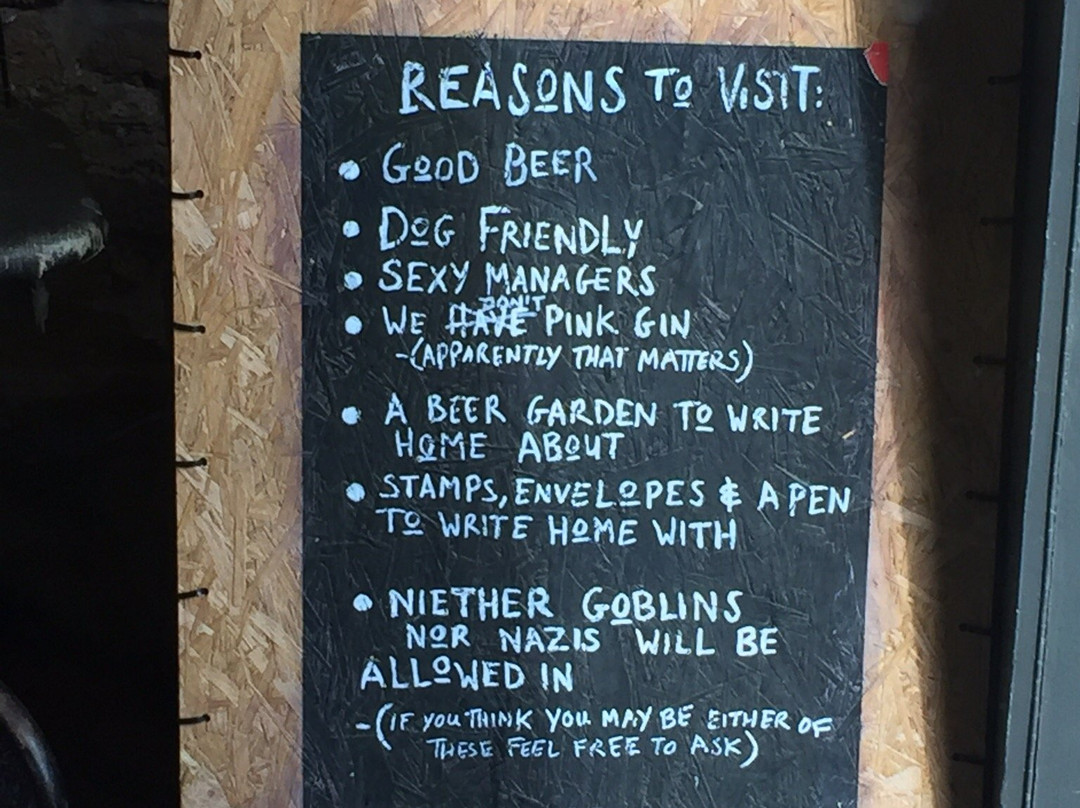 REASONS TO VISIT:
• GOOD BEER
• DOG FRIENDLY
• SEXY MANAGERS
DON'T
• WE HAVE PINK GIN
-(APPARENTLY THAT MATTERS)
• A BEER GARDEN TO WRITE
HOME ABOUT
• STAMPS, ENVELOPES & A PEN
TO WRITE HOME WITH
• NIETHER GOBLINS
NOR NAZIS WILL BE
ALLOWED IN
-(IF YOU THINK YOU MAY BE EITHER OF
THESE FEEL FREE TO ASK)